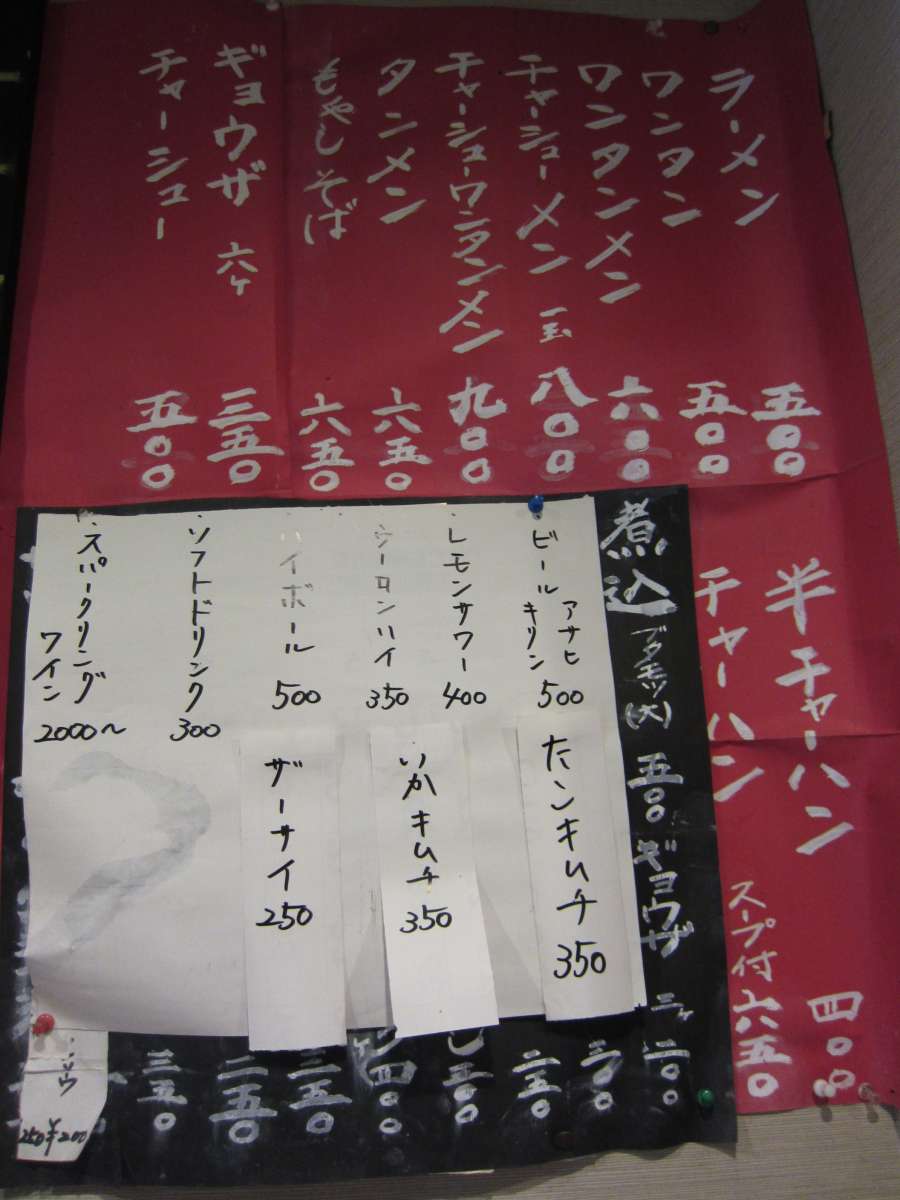 ラーメン 五〇〇
ワンタン 五〇〇
ワンタンメン 六〇〇
チャーシューメン 一玉 八〇〇
チャーシューワンタンメン 九〇〇
タンメン 六五〇
もやしそば 六五〇
ギョウザ 六ケ 三五〇
チャーシュー 五〇〇
半チャーハン 四〇〇
チャーハン スープ付 六五〇
煮込 ブタモツ(大) 五〇〇
ギョウザ 三ケ 二〇〇
ビール アサヒ キリン 500
レモンサワー 400
ウーロンハイ 350
ハイボール 500
・ソフトドリンク 300
・スパークリング ワイン 2000〜
たんキムチ 350
いかキムチ 350
ザーサイ 250
三〇〇
二五〇
三〇〇
四〇〇
三五〇
二五〇
三五〇
250 ¥200